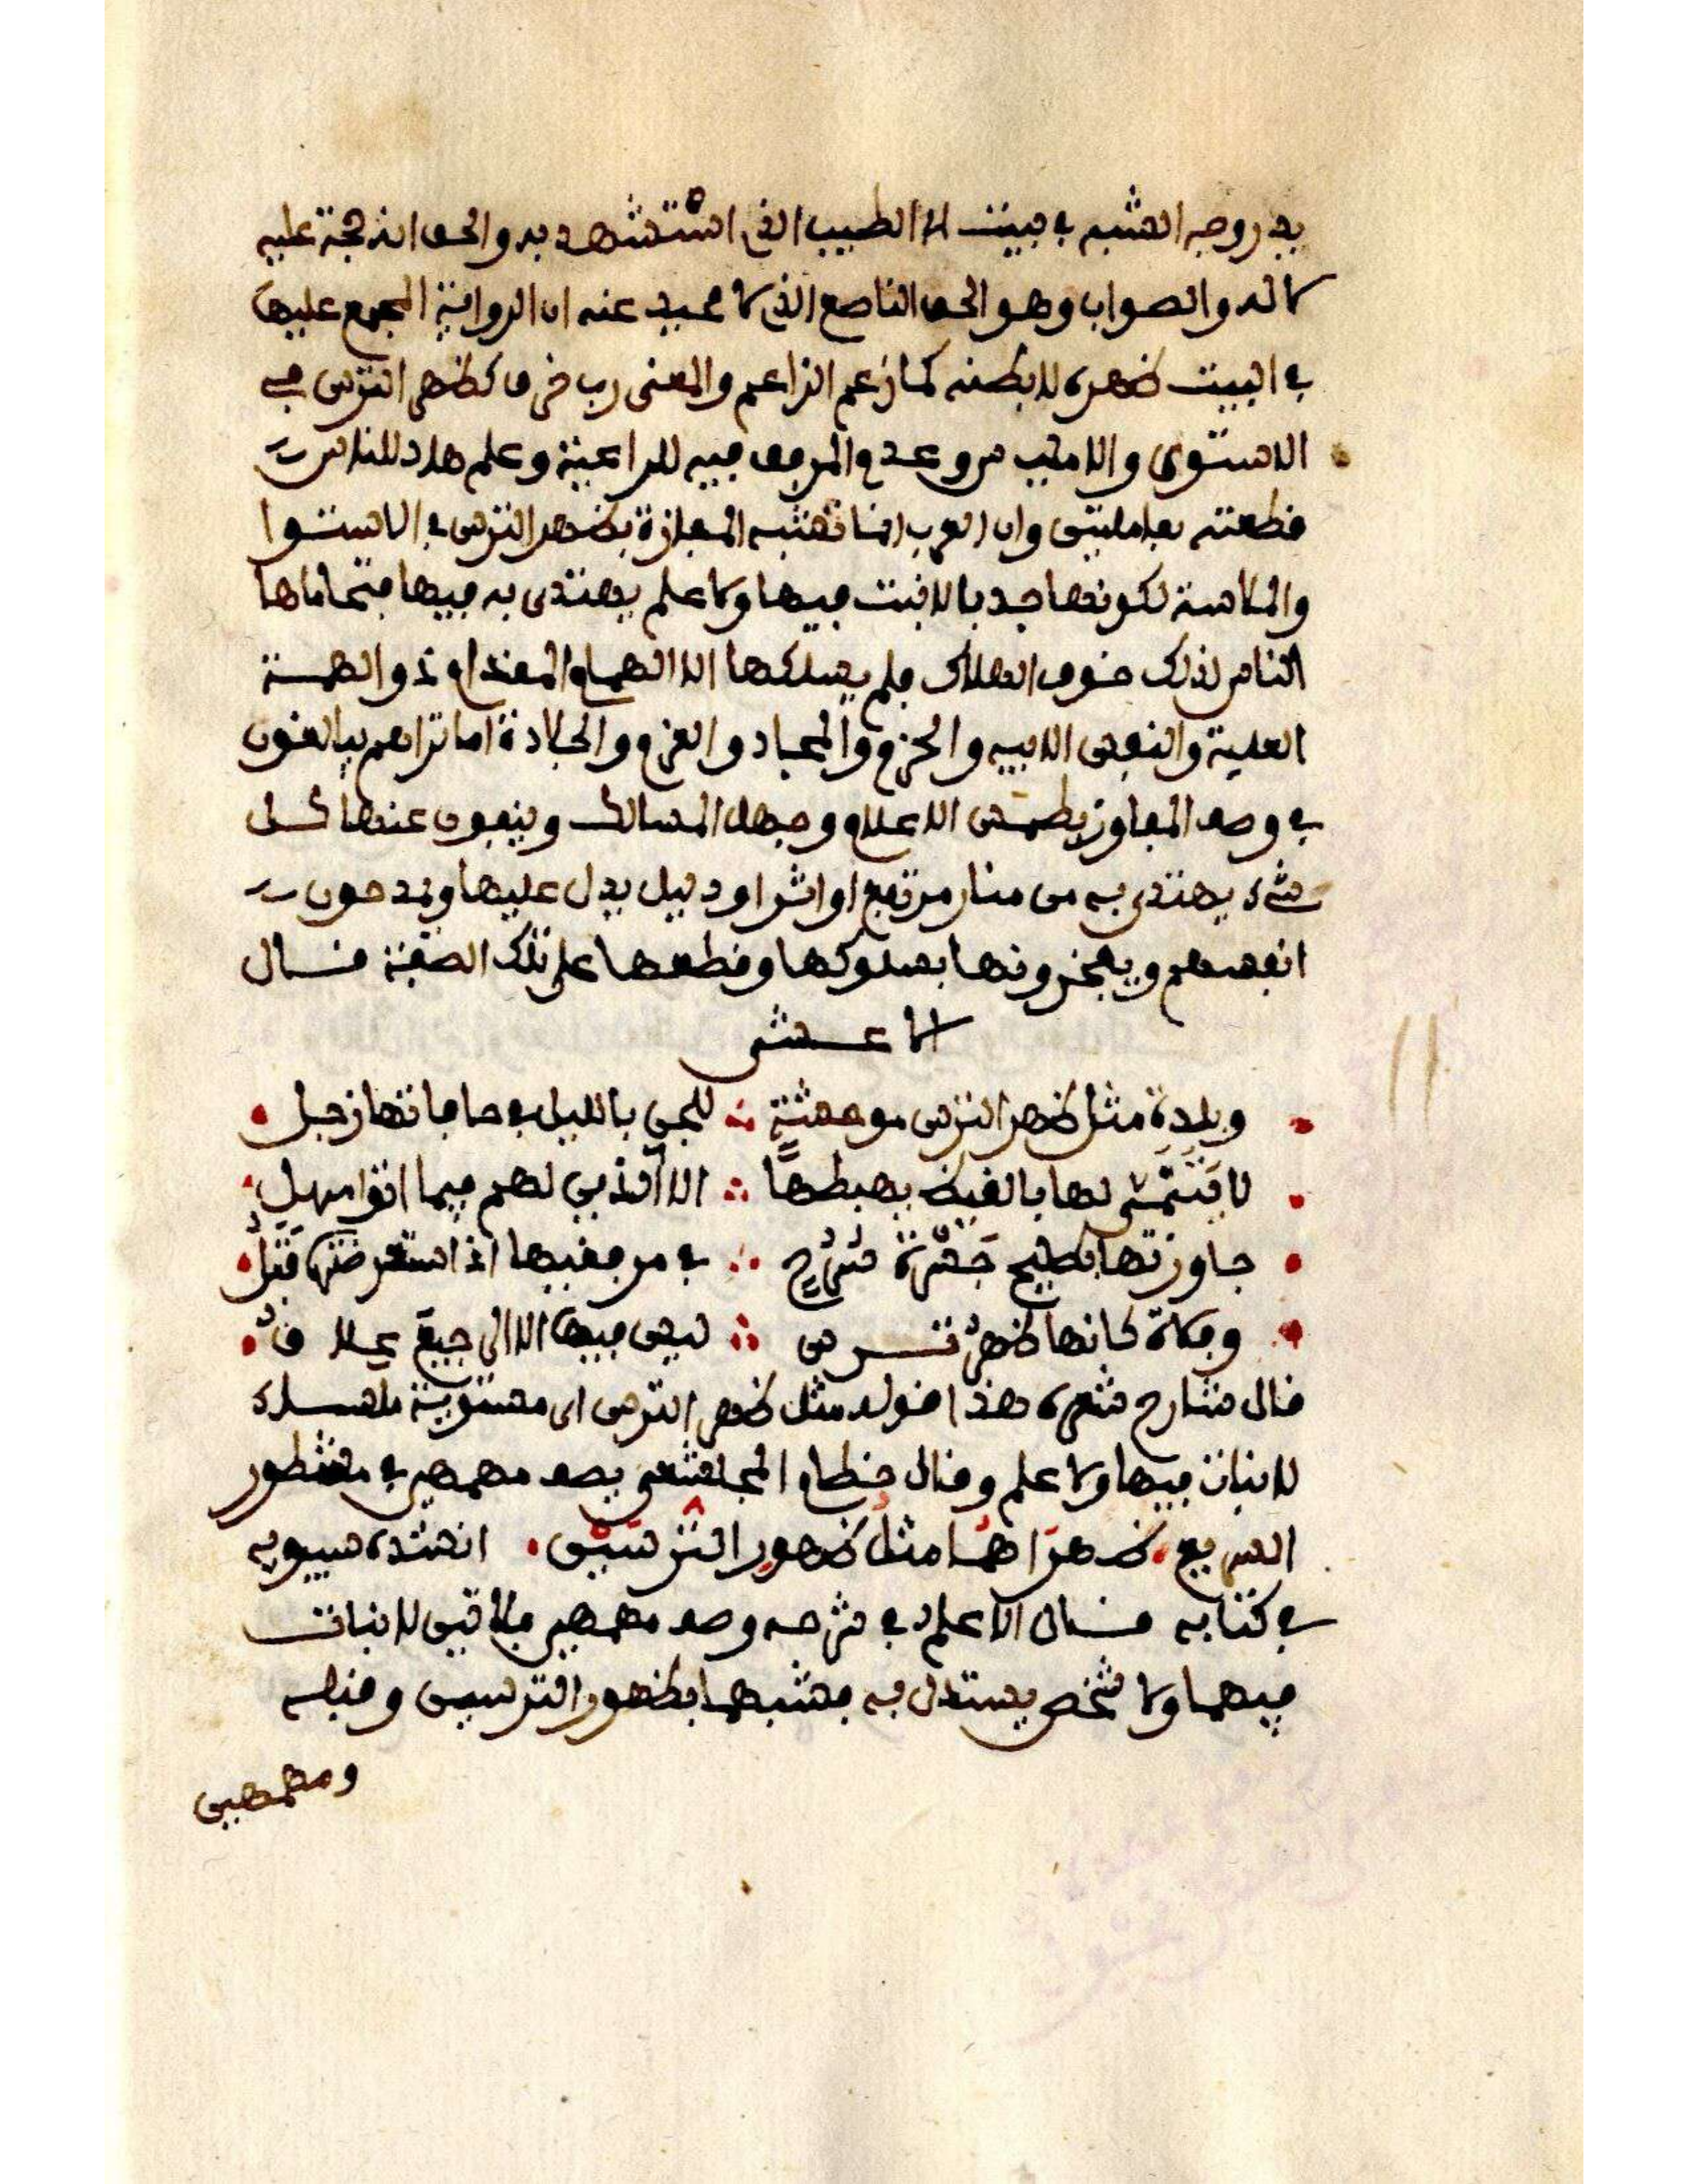 يدر وجه الشبه في بيت ابي الطيب الذي استشهد به والحق انه حجة عليه
لا له والصواب وهو الحق الناصع الذي لا محيد عنه ان الرواية المجمع عليها
في البيت ظهره لا بطنه كما زعم الزاعم والمعنى رب خرق كظهر الترس في
الاستوى والا مرعى فيه للراعية وعلم هاد للناس
قطعته بعاملتي وان العرب انما تشبه المفازة بظهر الترس في الاستوا
والملاسة لكونها جدبا لا نبت فيها ولا علم يهتدى به فيها فتحاماها
الناس لذلك خوف الهلاك فلم يسلكها الا الهمام المقدام ذو الهمة
العلية والنفس الابيه والحزم والجياد والعزم والجلادة اما تراهم يبالغون
في وصف المفاوز بطمس الاعلام وجهل المسالك وينفون عنها كل
شيء يهتدى به من منار مرتفع او اثر او دليل يدل عليها ويمدحون
انفسهم ويفخرونها بسلوكها وقطعها على تلك الصفة قال
الاعشى
وبلدة مثل ظهر الترس موحشة ∴ للجن بالليل في حافاتها زجل
لا يتنمى لها بالقيظ يهبطها ∴ الا الذين لهم فيما اتوا مهل
جاوزتها بطليح جسرة سرح ∴ في مرفقيها اذا استعرضتها فتل
وفلاة كانها ظهر ترس ∴ ليس فيها الا الرجيع علاق
قال شارح شعره هذا قوله مثل ظهر الترس اي مستوية ملساء
لا نبات فيها ولا علم وقال خطام المجاشعي يصف مهمهين في مشطور
السريع . ظهراهما مثل ظهور الترسين . انشده سيبويه
في كتابه قال الاعلم في شرحه وصف مهمهين فلاتين لا نبات
فيهما ولا شخص يستدل به فشبههما بظهور الترسين وقبله
ومهمهين